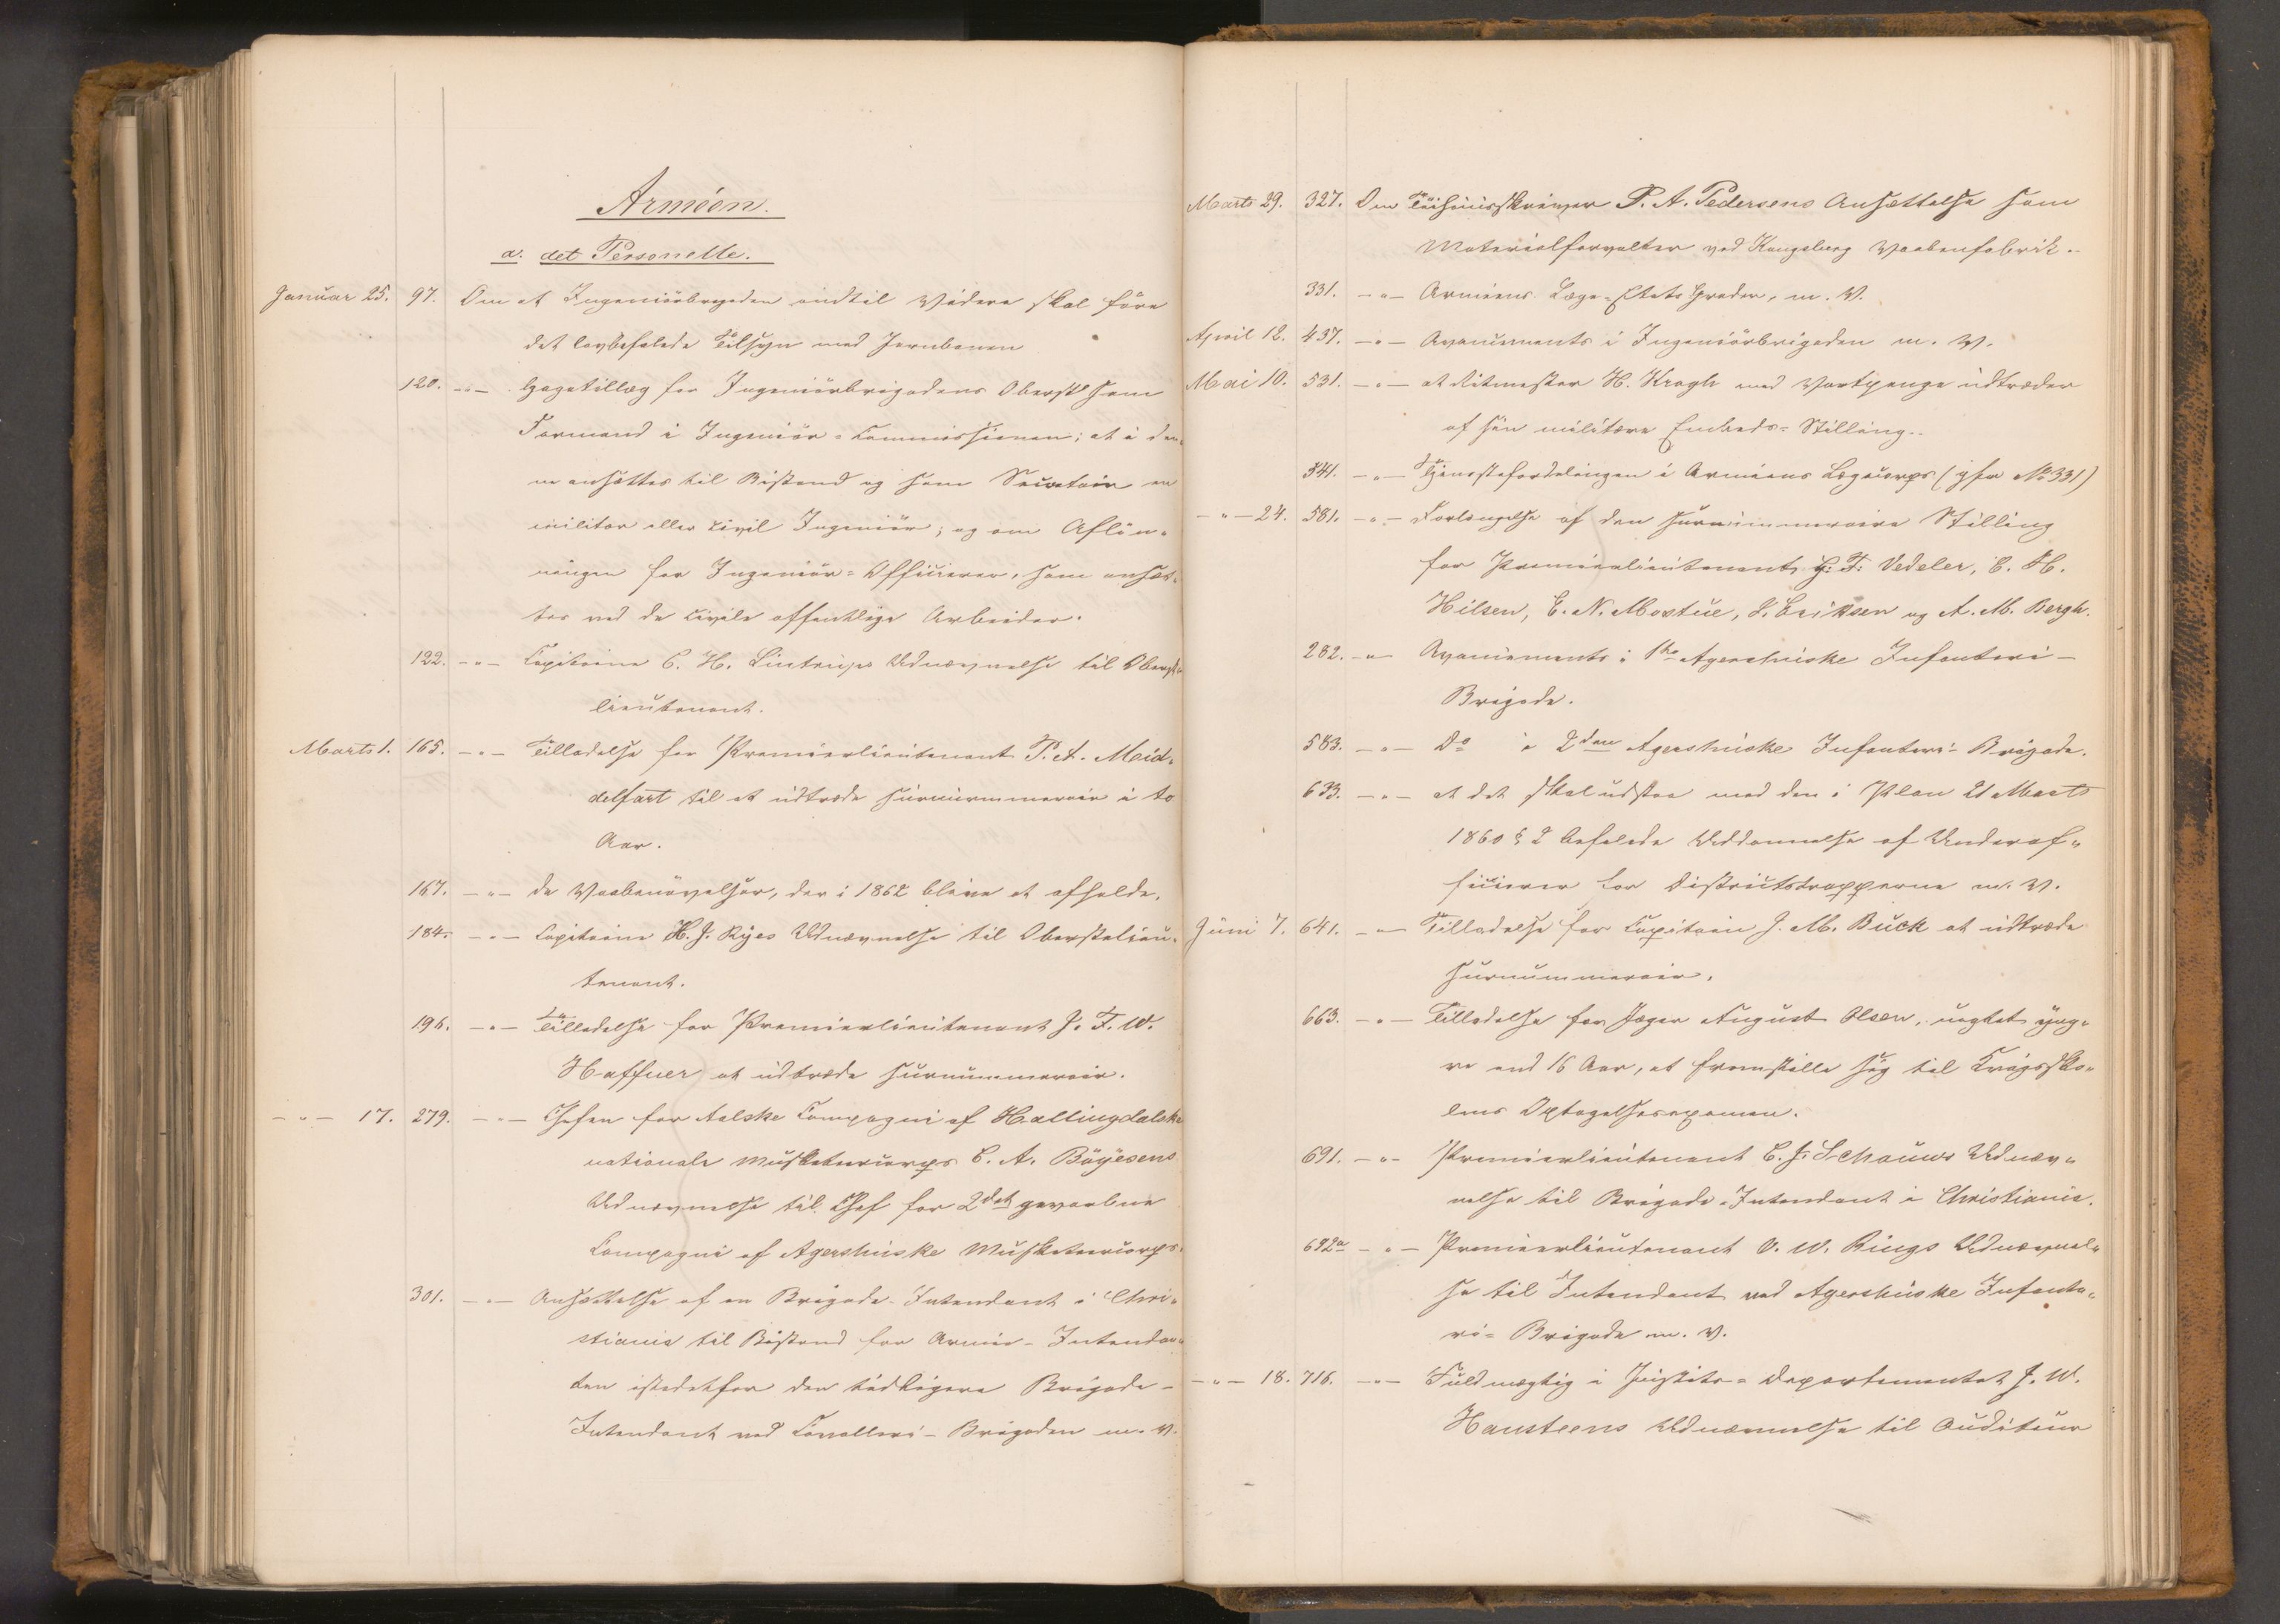 Arméen.
a. det Personelle.
Januar 25. 97. Om at Ingeniörbrigaden indtil Videre skal före
det lovbefalede Tilsyn med Jernbanen
120. -"- Gagetillæg for Ingeniörbrigadens Oberst som
Formand i Ingeniör-Commissionen; at i den-
ne ansættes til Bistand og som Secretair en
militær eller civil Ingeniör; og om Aflön-
ningen for Ingeniör-Officierer, som ansæt-
tes ved de civile offentlige Arbeider.
122. -"- Capitaine C. H. Lintrups Udnævnelse til Oberst-
lieutenant.
Marts 1. 165. -"- Tilladelse for Premierlieutenant P. A. Meid-
delfart til at udtræde surnummerair i to
Aar.
167. -"- de Vaabenövelser, der i 1862 blive at afholde.
184. -"- Capitaine H. J. Ryes Udnævnelse til Oberstlieu-
tenant.
196. -"- Tilladelse for Premierlieutenant J. F. W.
Haffner at udtræde surnummerair.
-"- 17. 279. -"- Chefen for Aalske Compagni af Hallingdalske
nationale Musketeercorps C. A. Böyesens
Udnævnelse til Chef for 2det gevorbne
Compagni af Agershuske Musketeercorps.
301. -"- Ansættelse af en Brigade-Intendant i Chri-
stiania til Bistand for Armée-Intendan-
ten istedetfor den tidligere Brigade-
Intendant ved Cavalleri-Brigaden m. V.
Marts 29. 327. Om Töihuusskriver P. A. Pedersens Ansættelse som
Materialforvalter ved Kongsberg Vaabenfabrik.
331. -"- Arméens Læge-Etats Grader, m. V.
April 12. 437. -"- Avancements i Ingeniörbrigaden m. V.
Mai 10. 531. -"- at Ritmester H. Krogh med Vartpenge udtræder
af sin militære Embeds-Stilling.
541. -"- Tjenestefordelingen i Arméens Lægecorps (jfr No 331)
-"- 24. 581. -"- Forlængelse af den surnummeraire Stilling
for Premierlieutenants G. F. Vedeler, C. H.
Hilsen, E. N. Mostue, S. Eriksen og A. M. Bergh.
282. -"- Avancements i 1ste Agershuske Infanteri-
Brigade.
583. -"- Do i 2den Agershuske Infanteri-Brigade.
633. -"- at det skal udstaa med den i Plan 21 Marts
1860 § 2 befalede Uddannelse af Underof-
ficierer for Districtstropperne m. V.
Juni 7. 641. -"- Tilladelse for Capitain J. M. Buck at udtræde
surnummerair.
663. -"- Tilladelse for Jæger August Olsen, uagtet yng-
re end 16 Aar, at fremstille sig til Krigssko-
lens Optagelsesexamen.
691. -"- Premierlieutenant C. J. Schouws Udnæv-
nelse til Brigade-Intendant i Christiania.
692a -"- Premierlieutenant O. W. Rings Udnævnel-
se til Intendant ved Agershuske Infante-
ri-Brigade m. V.
-"- 18. 716. -"- Fuldmægtig i Justits-Departementet J. W.
Hansteens Udnævnelse til Auditeur